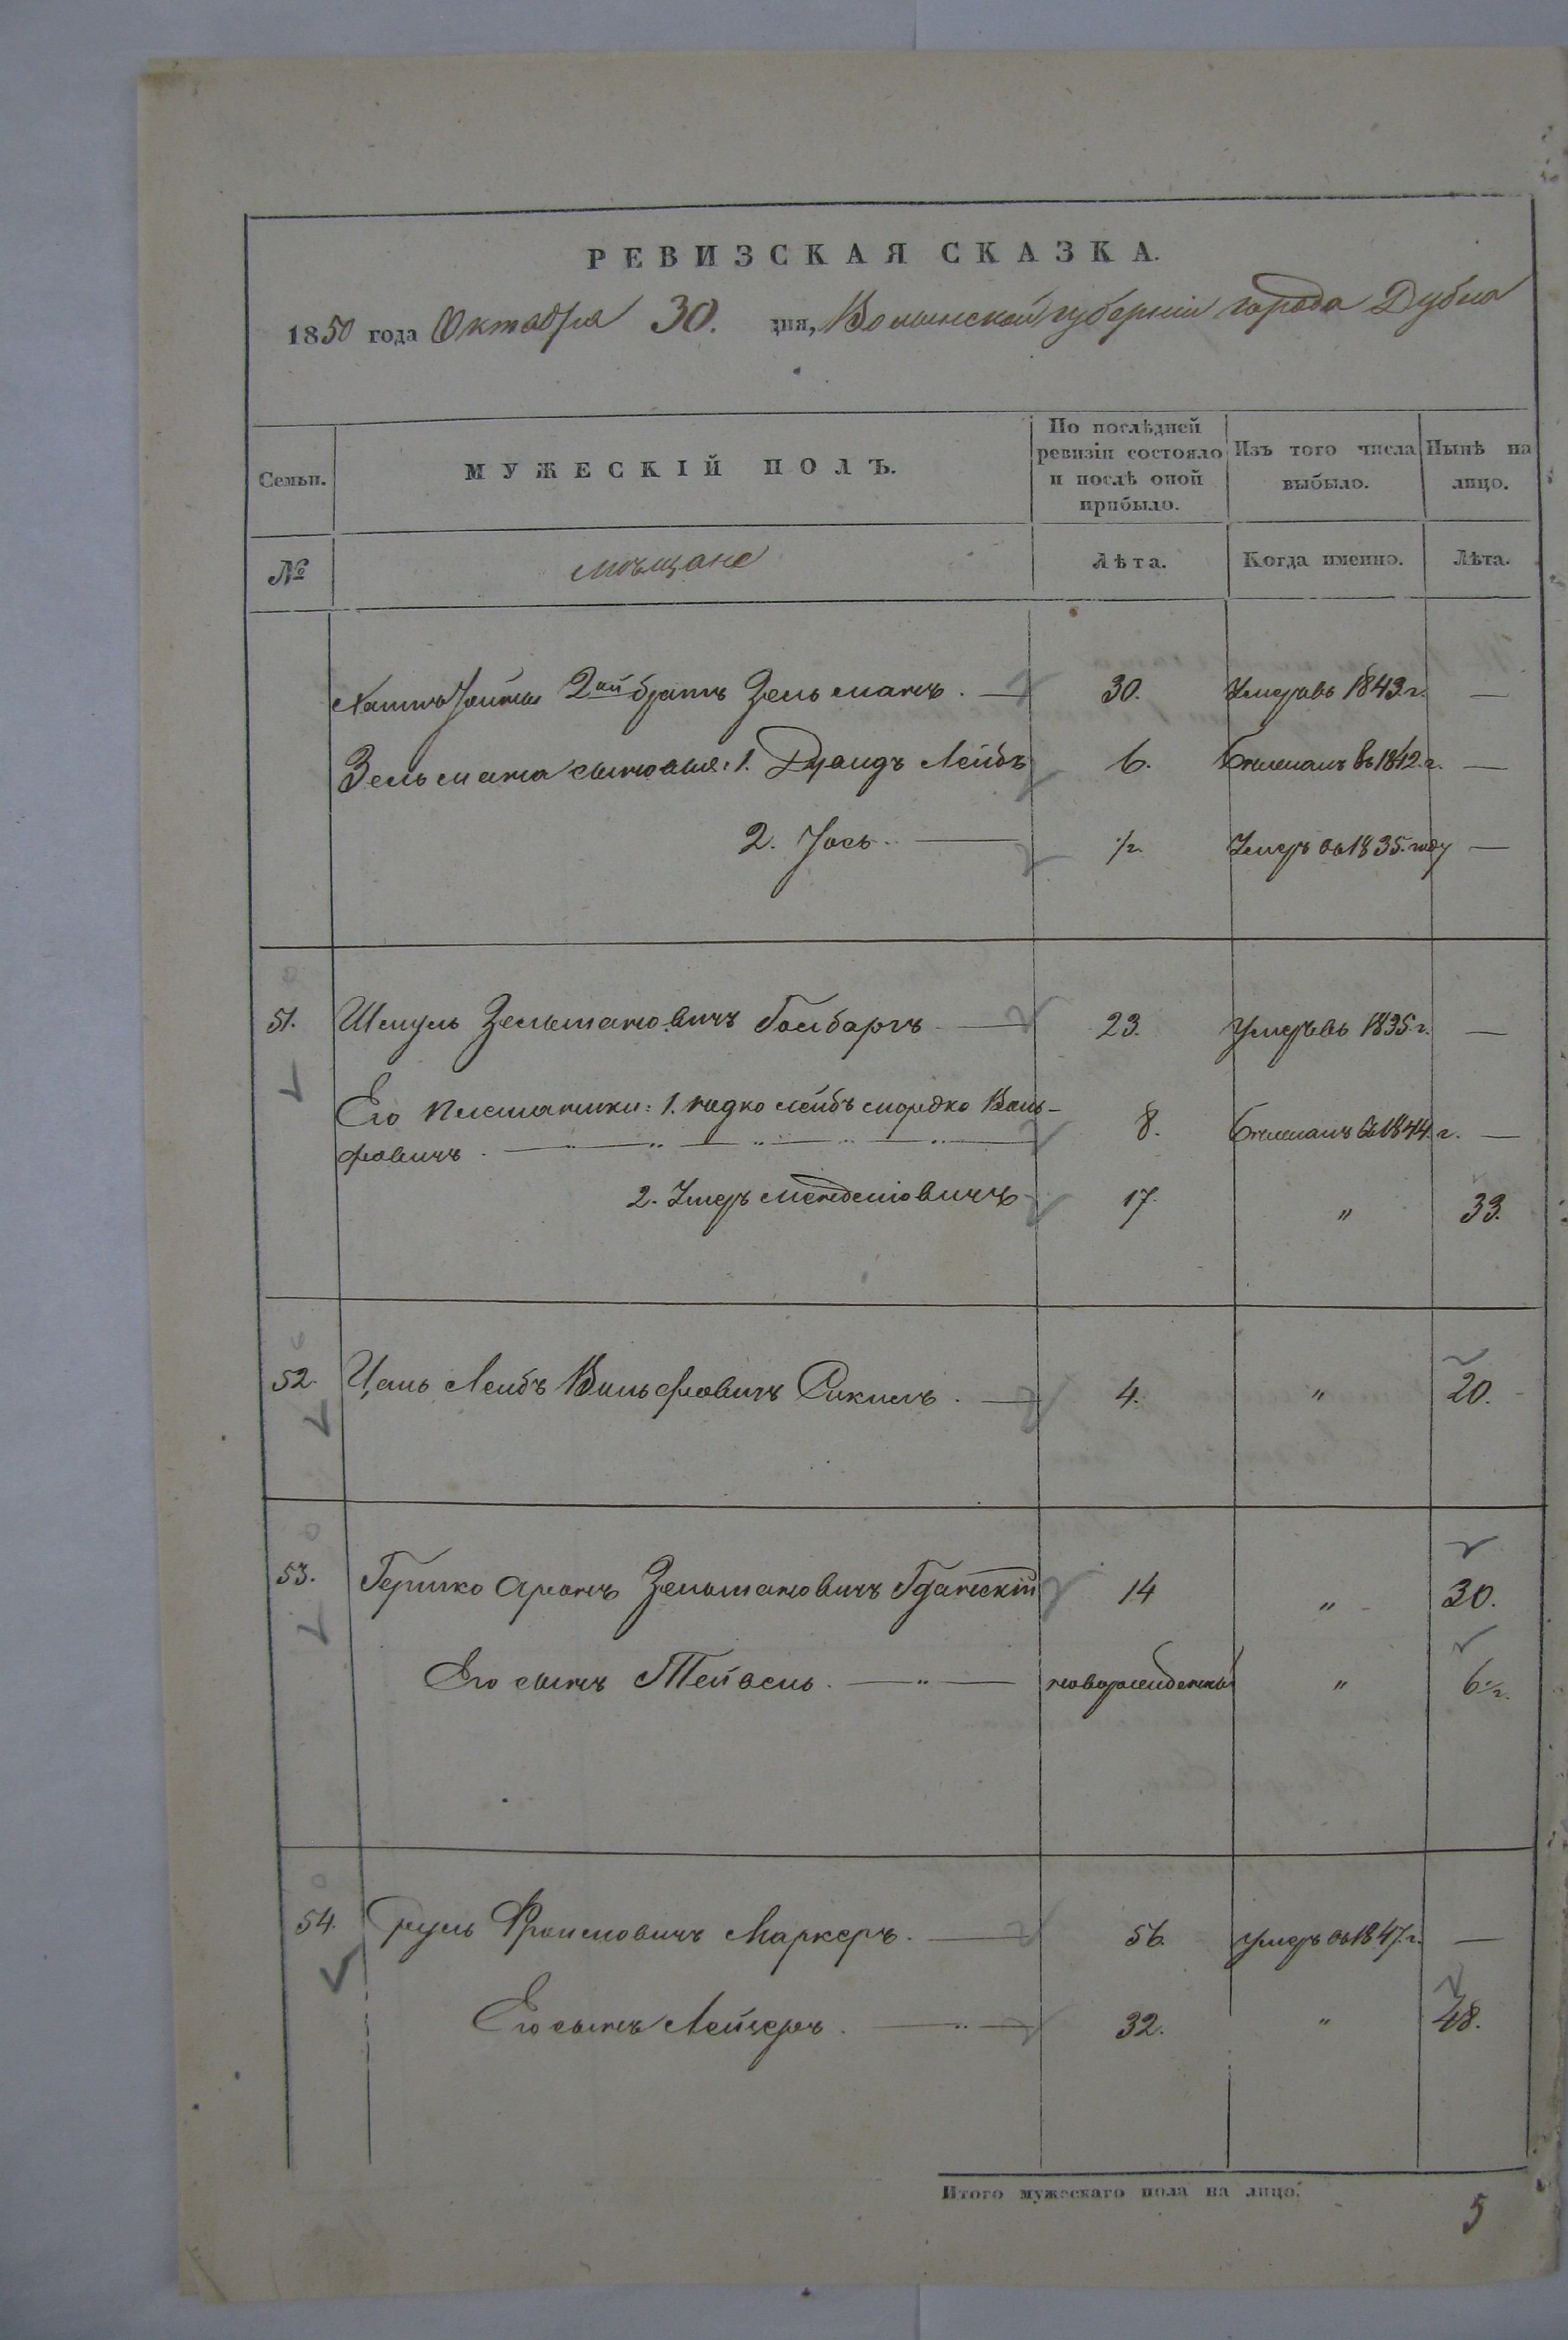 РЕВИЗСКАЯ СКАЗКА.
1850 года Октября 30. дня, Волынской губернии города Дубна
Семьи. МУЖЕСКІЙ ПОЛЪ. По послѣдней ревизіи состояло и послѣ оной прибыло. Изъ того числа выбыло. Нынѣ на лицо.
№ мѣщане Лѣта. Когда именно. Лѣта.
2ой братъ Зельманъ. — 30. Умеръ въ 1843 г. —
Зельмана сыновья: 1. Дувидъ Лейбъ 6. въ 1842. г. —
2. Іось. — 1/2. Умеръ въ 1835. году —
51. Шмуль Зельмановичъ Гольбаргъ — 23. Умеръ въ 1835 г. —
Его племянники: 1. Лейбъ Мордко Воль-
фовичъ. — " — " — " — " — 8. въ 1844. г. —
2. Менделіовичъ 17. " 33.
52. Лейбъ Вольфовичъ — 4. " 20.
53. Гершко Аронъ Зельмановичъ Гданскій 14 " 30.
Его сынъ Тейвель. — " — новорожденный " 6 1/2.
54. Сруль Фроимовичъ Маркеръ. — 56. Умеръ въ 1847. г. —
Его сынъ Лейзеръ. — " — 32. " 48.
Итого мужескаго пола на лицо. 5